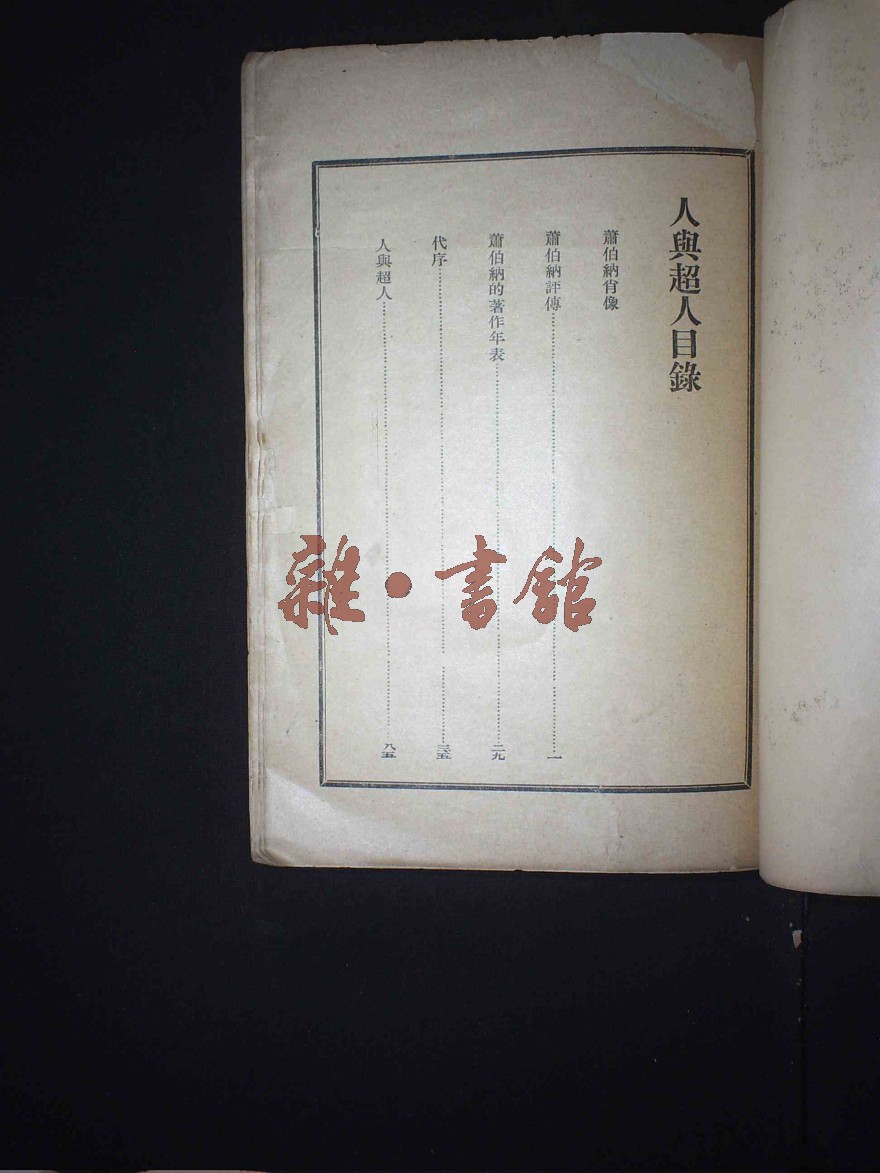 人與超人目錄
蕭伯納肖像
蕭伯納評傳……一
蕭伯納的著作年表……二九
代序……三五
人與超人……八五
雜·書館